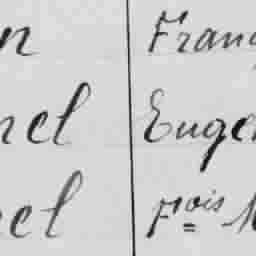 n Franç
nel Euge
el Fois M